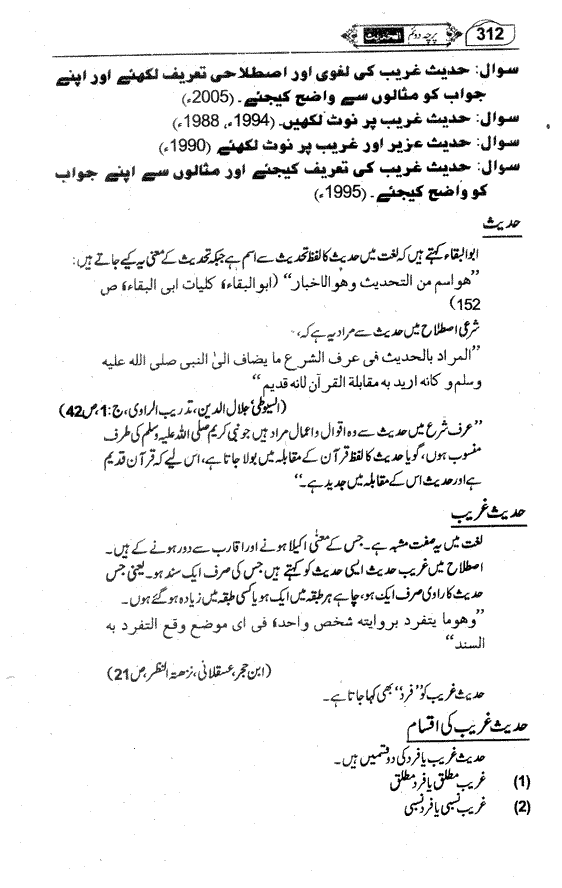 312 الحدیث پرچہ دوئم
سوال: حدیث غریب کی لغوی اور اصطلاحی تعریف لکھئے اور اپنے
جواب کو مثالوں سے واضح کیجئے۔ (2005ء)
سوال: حدیث غریب پر نوٹ لکھیں۔ (1994ء، 1988ء)
سوال: حدیث عزیز اور غریب پر نوٹ لکھئے (1990ء)
سوال: حدیث غریب کی تعریف کیجئے اور مثالوں سے اپنے جواب
کو واضح کیجئے۔ (1995ء)
حدیث
ابوالبقاء کہتے ہیں کہ لغت میں حدیث کا لفظ تحدیث سے اسم ہے جبکہ تحدیث کے معنی یہ کیے جاتے ہیں:
”ھو اسم من التحدیث وھو الاخبار“ (ابوالبقاء، کلیات ابی البقاء، ص
152)
شرعی اصطلاح میں حدیث سے مراد یہ ہے کہ،
”المراد بالحدیث فی عرف الشرع ما یضاف الیٰ النبی صلی الله علیه
وسلم و کانه ارید به مقابلة القرآن لانه قدیم“
(السیوطیؒ جلال الدین، تدریب الراوی، ج:1، ص42)
”عرف شرع میں حدیث سے وہ اقوال واعمال مراد ہیں جو نبی کریم صلی اللہ علیہ وسلم کی طرف
منسوب ہوں، گویا حدیث کا لفظ قرآن کے مقابلہ میں بولا جاتا ہے، اس لیے کہ قرآن قدیم
ہے اور حدیث اس کے مقابلہ میں جدید ہے۔“
حدیث غریب
لغت میں یہ صفت مشبہ ہے۔ جس کے معنیٰ اکیلا ہونے اور اقارب سے دور ہونے کے ہیں۔
اصطلاح میں غریب حدیث ایسی حدیث کو کہتے ہیں جس کی صرف ایک سند ہو۔ یعنی جس
حدیث کا راوی صرف ایک ہو، چاہے ہر طبقہ میں ایک ہو یا کسی طبقہ میں زیادہ ہو گئے ہوں۔
”وھو ما یتفرد بروایته شخص واحد، فی ای موضع وقع التفرد به
السند“
(ابن حجر، عسقلانی، نزھۃ النظر، ص21)
حدیث غریب کو ”فرد“ بھی کہا جاتا ہے۔
حدیث غریب کی اقسام
حدیث غریب یا فرد کی دو قسمیں ہیں۔
(1) غریب مطلق یا فرد مطلق
(2) غریب نسبی یا فرد نسبی